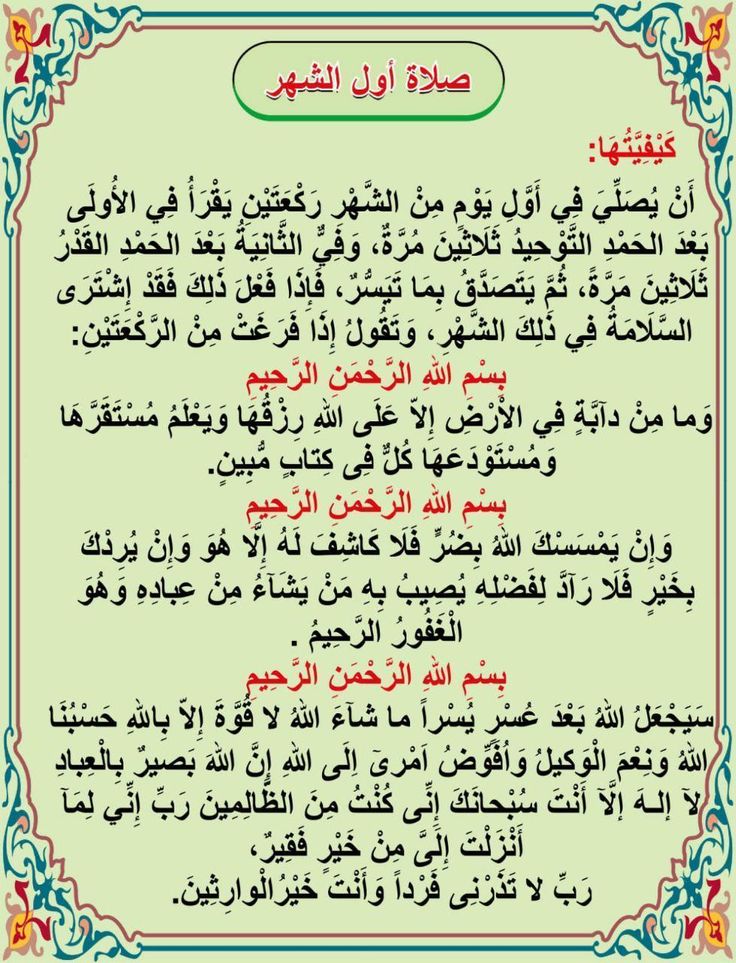 صلاة أول الشهر
كَيْفِيَّتُهَا:
أَنْ يُصَلِّيَ فِي أَوَّلِ يَوْمٍ مِنْ الشَّهْرِ رَكْعَتَيْنِ يَقْرَأُ فِي الأُولَى
بَعْدَ الحَمْدِ التَّوْحِيدُ ثَلَاثِينَ مُرَّةٌ، وَفَيُّ الثَّانِيَةُ بَعْدَ الحَمْدِ القَدْرُ
ثَلَاثِينَ مَرَّةً، ثُمَّ يَتَصَدَّقُ بِمَا تَيَسُّرٌ، فَإِذَا فَعْلَ ذَلِكَ فَقَدْ إشْتَرَى
السَّلَامَةُ فِي ذَلِكَ الشَّهْرِ، وَتَقُولُ إِذَا فَرَغَتْ مِنْ الرَّكْعَتَيْنِ:
بِسْمِ اللهِ الرَّحْمَنِ الرَّحِيمِ
وَما مِنْ دآبَّةٍ فِي الأَرْضِ إِلاّ عَلَى اللهِ رِزْقُهَا وَيَعْلَمُ مُسْتَقَرَّهَا
وَمُسْتَوْدَعَهَا كُلٌّ فِى كِتابٍ مُّبِينٍ.
بِسْمِ اللهِ الرَّحْمَنِ الرَّحِيمِ
وَإِنْ يَمْسَسْكَ اللهُ بِضُرٍّ فَلَا كَاشِفَ لَهُ إِلَّا هُوَ وَإِنْ يُرِدْكَ
بِخَيْرٍ فَلَا رَآدَّ لِفَضْلِهِ يُصِيبُ بِهِ مَنْ يَشَآءُ مِنْ عِبادِهِ وَهُوَ
الْغَفُورُ الرَّحِيمُ .
بِسْمِ اللهِ الرَّحْمَنِ الرَّحِيمِ
سَيَجْعَلُ اللهُ بَعْدَ عُسْرٍ يُسْراً ما شآءَ اللهُ لا قُوَّةَ إِلاّ بِاللهِ حَسْبُنَا
اللهُ وَنِعْمَ الْوَكيلُ وَاُفَوِّضُ اَمْرىَ اِلَى اللهِ إِنَّ اللهَ بَصيرٌ بِالْعِبادِ
لآ إِلـهَ إِلَّآ أَنْتَ سُبْحانَكَ إِنِّى كُنْتُ مِنَ الظَّالِمِينَ رَبِّ إِنِّي لِمَآ
أَنْزَلْتَ إِلَىَّ مِنْ خَيْرٍ فَقِيرٌ،
رَبِّ لا تَذَرْنِى فَرْداً وَأَنْتَ خَيْرُالْوارِثِينَ.